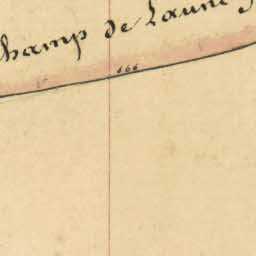 champ de Laune
666